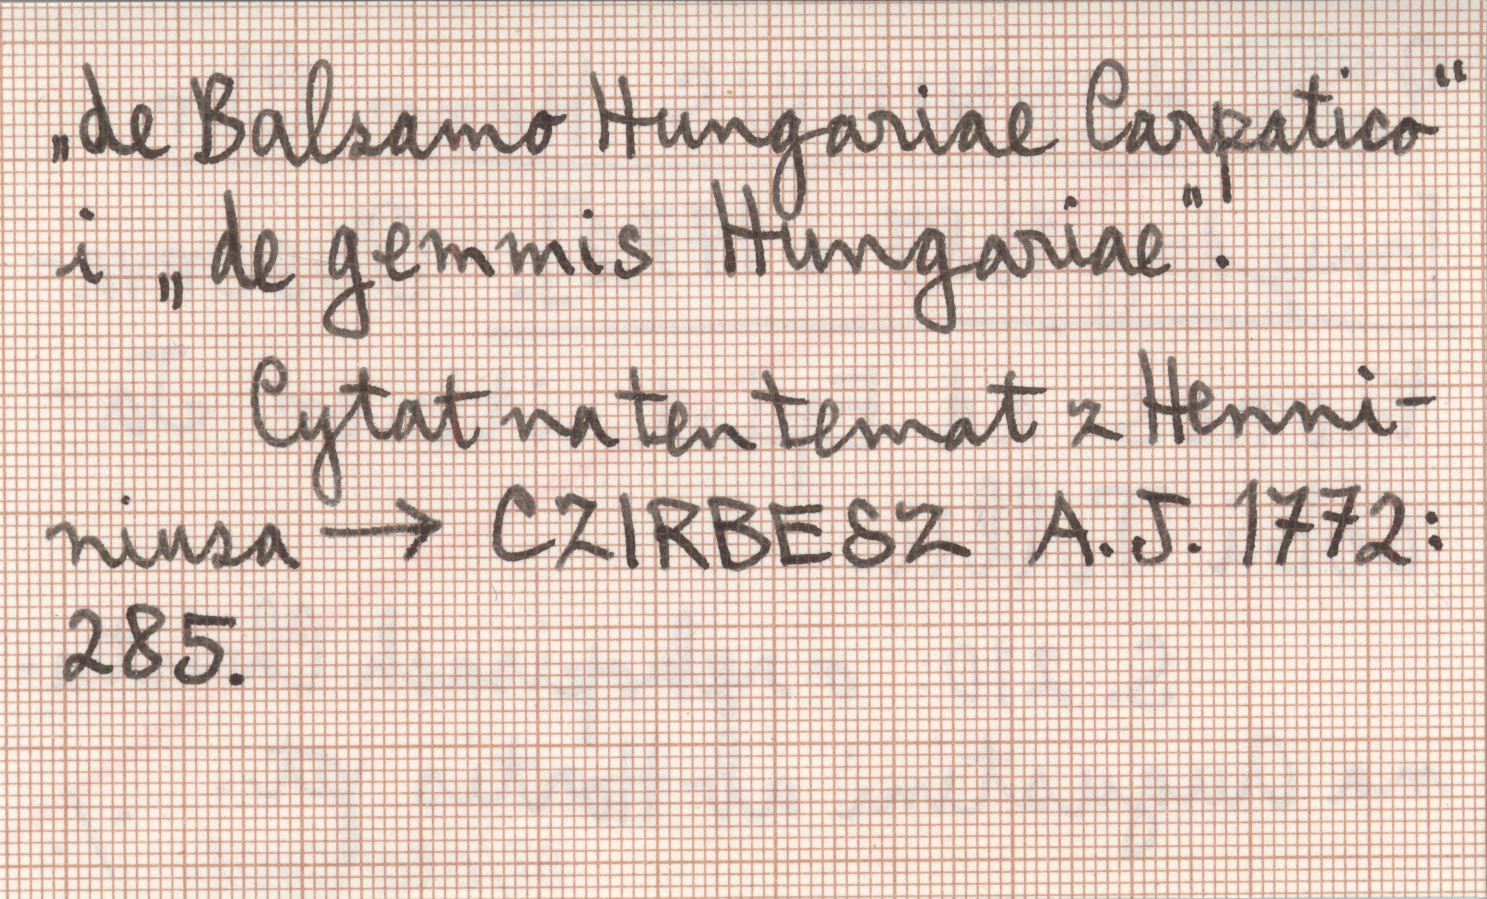 „de Balsamo Hungariae Carpatico"
i „de gemmis Hungariae".
Cytat na ten temat z Henni-
niusa → CZIRBESZ A.J. 1772:
285.